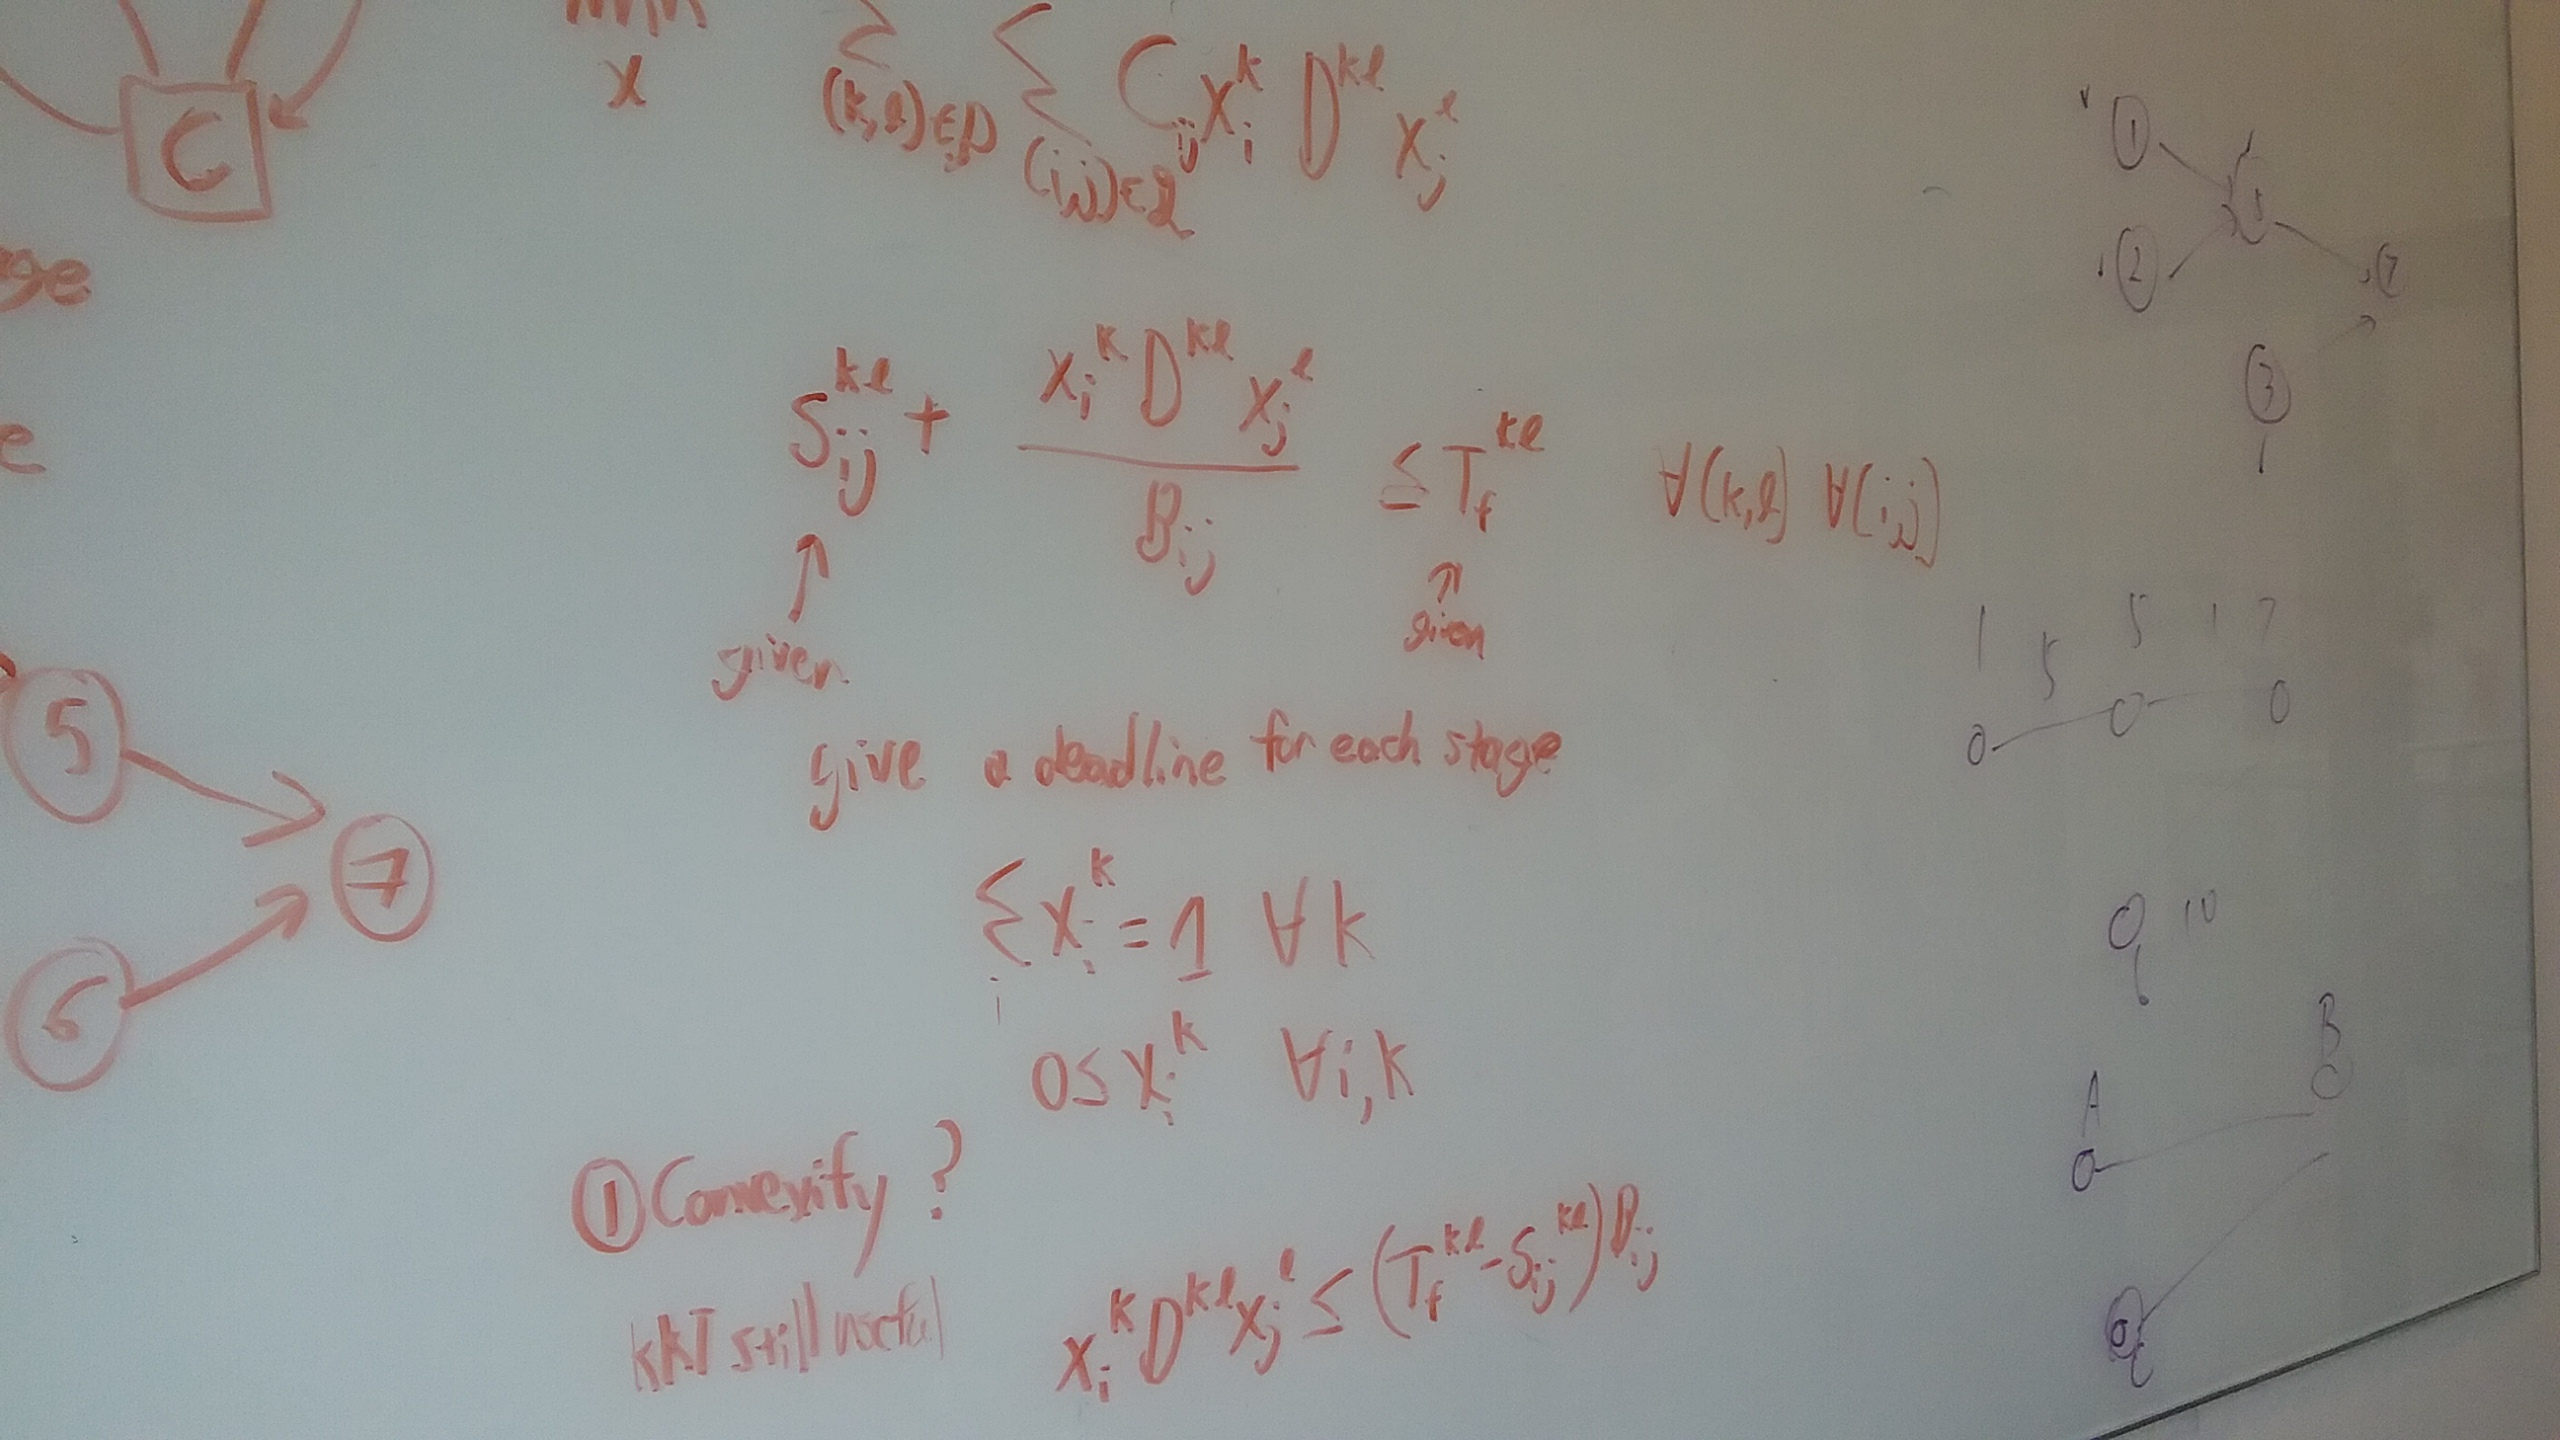 min
x
Σ Σ C_ij x_i^k D^kl x_j^l
(k,l)∈D (i,j)∈L
C
ge
e
S_ij^kl + x_i^k D^kl x_j^l / B_ij ≤ T_f^kl ∀(k,l) ∀(i,j)
↑ given
↑ given
give a deadline for each stage
Σ_i x_i^k = 1 ∀k
0 ≤ x_i^k ∀i,k
① Convexity?
KKT still useful
x_i^k D^kl x_j^l ≤ (T_f^kl - S_ij^kl) B_ij
5
7
6
1
2
3
7
1 5 5 1 7
10
A
B